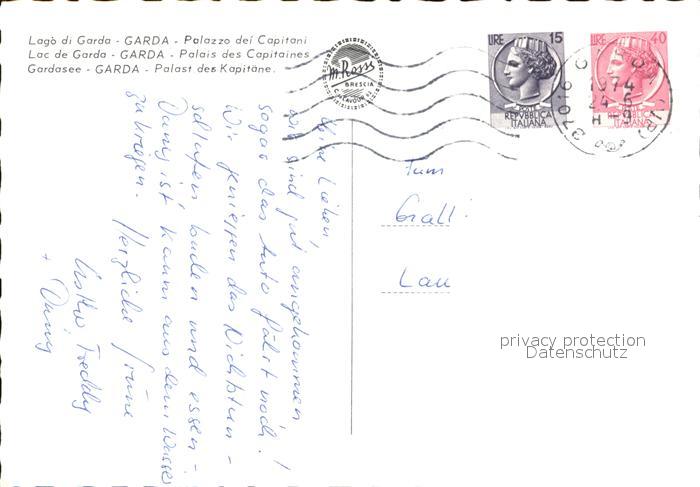 Lagò di Garda - GARDA - Palazzo dei Capitani
Lac de Garda - GARDA - Palais des Capitaines
Gardasee - GARDA - Palast des Kapitäne.
M. Rossi
BRESCIA
LIRE 15
REPVBBLICA
ITALIANA
LIRE 40
REPVBBLICA
ITALIANA
1974
24-5
H
370
Meine Lieben,
wir sind gut angekommen!
sogar das Auto fährt noch!
Wir geniessen das Nichtstun -
schlafen, baden und essen -
Dany ist kaum aus dem Wasser
zu kriegen. Herzliche Grüsse
Freddy
+ Dany
Fam
Galli
Lau
privacy protection
Datenschutz